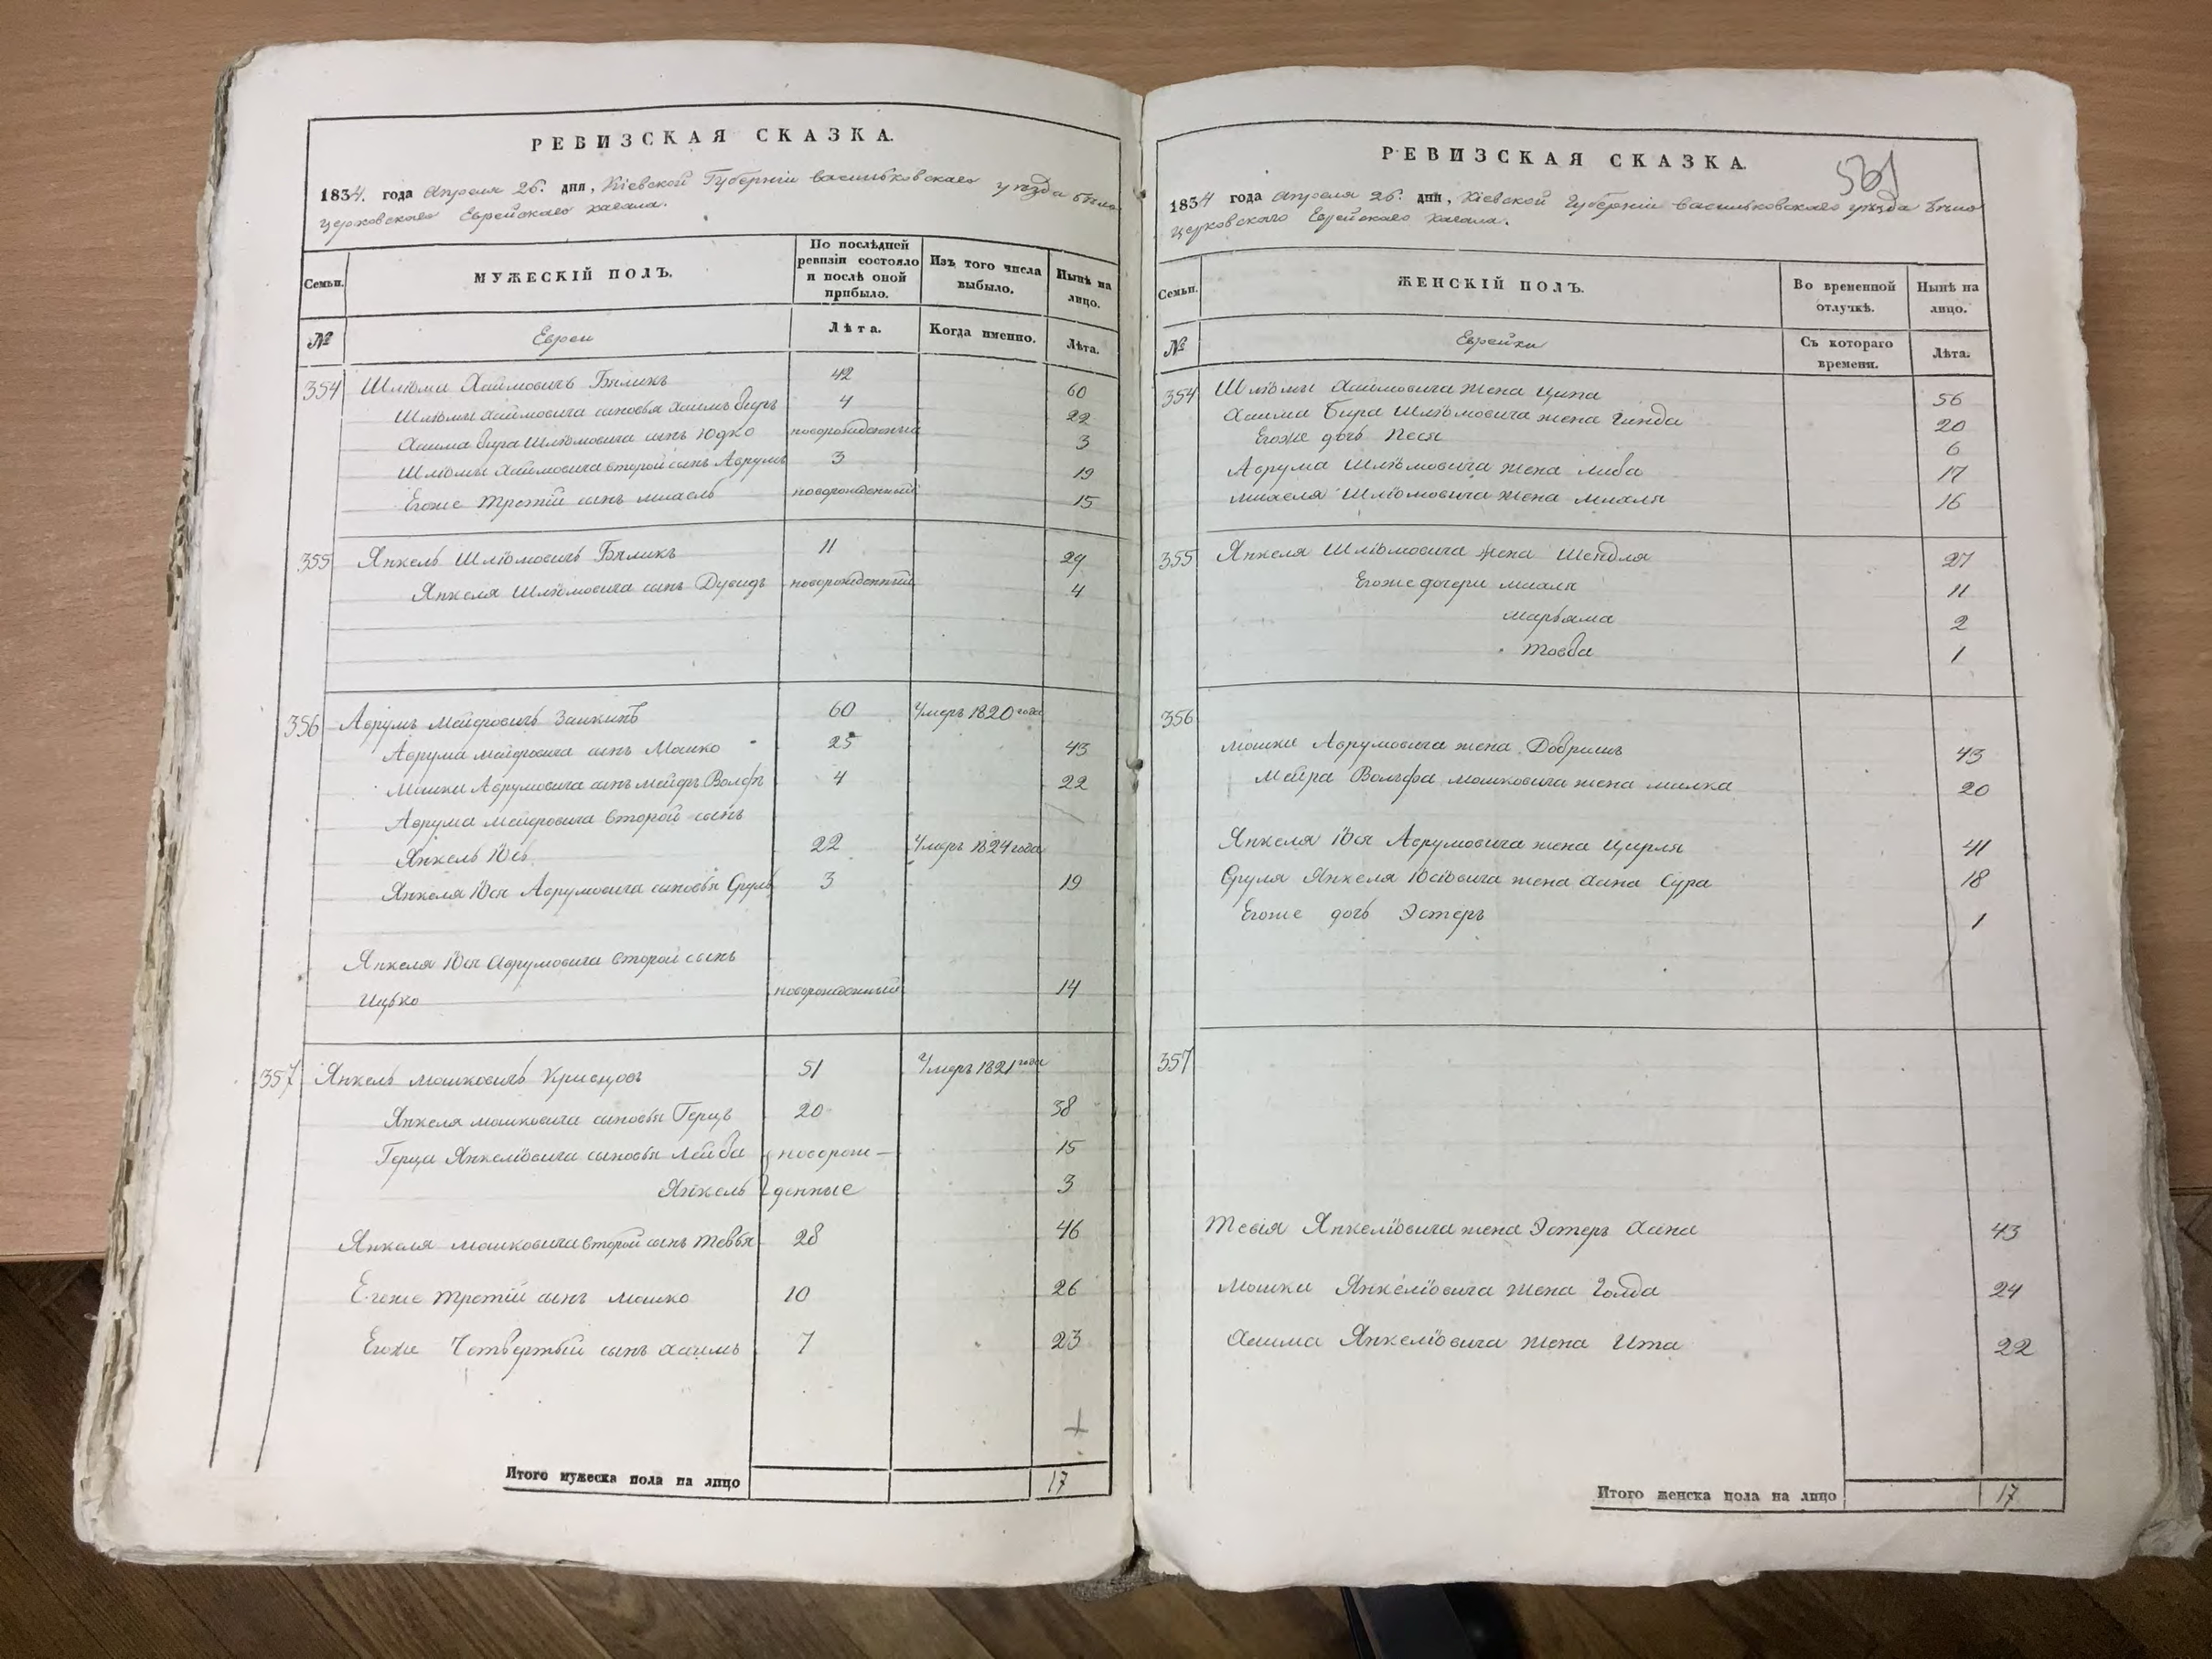 РЕВИЗСКАЯ СКАЗКА.
1834. года Апреля 26. дня, Кіевской Губерніи Васильковскаго уѣзда Бѣло
церковскаго Еврейскаго кагала.
Семьи.
МУЖЕСКІЙ ПОЛЪ.
По послѣдней ревизіи состояло и послѣ оной прибыло.
Изъ того числа выбыло.
Нынѣ на лицо.
№
Евреи
Лѣта.
Когда именно.
Лѣта.
354 Шлюма Хаимовичъ Бяликъ 42 60
Шлюмы Хаимовича сыновья Хаимъ Биръ 4 22
Хаима Бира Шлюмовича сынъ Юдко новорожденный 3
Шлюмы Хаимовича второй сынъ Аврумъ 3 19
Егоже третій сынъ Михель новорожденный 15
355 Янкель Шлюмовичъ Бяликъ 11 29
Янкеля Шлюмовича сынъ Дувидъ новорожденный 4
356 Аврумъ Мейеровичъ Заикинъ 60 Умеръ 1820 года
Аврума Мейеровича сынъ Мошко 25 43
Мошки Аврумовича сынъ Мейеръ Волфъ 4 22
Аврума Мейеровича второй сынъ
Янкель Іось 22 Умеръ 1824 года
Янкеля Іося Аврумовича сыновья Сруль 3 19
Янкеля Іося Аврумовича второй сынъ
Ицько новорожденный 14
357 Янкель Мошковичъ 51 Умеръ 1821 года
Янкеля Мошковича сыновья Герцъ 20 38
Герца Янкелïовича сыновья Лейба новорож— 15
Янкель денные 3
Янкеля Мошковича второй сынъ Тевья 28 46
Егоже третій сынъ Мошко 10 26
Егоже Четвертый сынъ Хаимъ 7 23
Итого мужеска пола на лицо 17
РЕВИЗСКАЯ СКАЗКА.
561
1834 года Апреля 26. дня, Кіевской Губерніи Васильковскаго уѣзда Бѣло
церковскаго Еврейскаго кагала.
Семьи.
ЖЕНСКІЙ ПОЛЪ.
Во временной отлучкѣ.
Нынѣ на лицо.
№
Еврейки
Съ котораго времени.
Лѣта.
354 Шлюмы Хаимовича жена Ципа 56
Хаима Бира Шлюмовича жена Гинда 20
Егоже дочь Песя 6
Аврума Шлюмовича жена Либа 17
Михеля Шлюмовича жена Михля 16
355 Янкеля Шлюмовича жена Шендля 27
Егоже дочери Михля 11
Марьяма 2
Товба 1
356
Мошки Аврумовича жена Добришъ 43
Мейра Вольфа Мошковича жена Милка 20
Янкеля Іося Аврумовича жена Цирля 41
Сруля Янкеля Іосïовича жена Хана Сура 18
Егоже дочь Эстеръ 1
357
Тевія Янкелïовича жена Эстеръ Хана 43
Мошки Янкелïовича жена Голда 24
Хаима Янкелïовича жена Ита 22
Итого женска пола на лицо 17